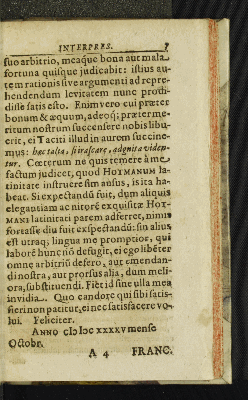 INTERPRES. 7
suo arbitrio, meaque bona aut mala
fortuna quisque judicabit: istius au-
tem rationis sive argumenti ad repre-
hendendum levitatem nunc prodi-
disse satis esto. Enimvero cui præter
bonum & æquum, adeoq; præterme-
ritum nostrum succensere nobis libu-
erit, ei Taciti illud in aurem succine-
mus: hæc talia, si irascare, adgnita viden-
tur. Cœterum ne quis temere à me
factum judicet, quod HOTMANUM la-
tinitate instruere sim ausus, is ita ha-
beat. Si exspectandū fuit, dum aliquis
elegantiam ac nitorē exquisitæ HOT-
MANI latinitati parem adferret, nimis
fortasse diu fuit exspectandū: sin alius
est utraq; lingua me promptior, qui
laborē hunc nō defugit, ei ego libēter
omne arbitriū defero, aut emendan-
di nostra, aut prorsus alia, dum meli-
ora, substituendi. Fiet id sine ulla mea
invidia. Quo candore qui sibi satis-
fieri non patitur, ei nec satisfacere vo-
lui. Feliciter.
ANNO cIɔ Iɔc XXXXV mense
Octobr.
A 4 FRANC.